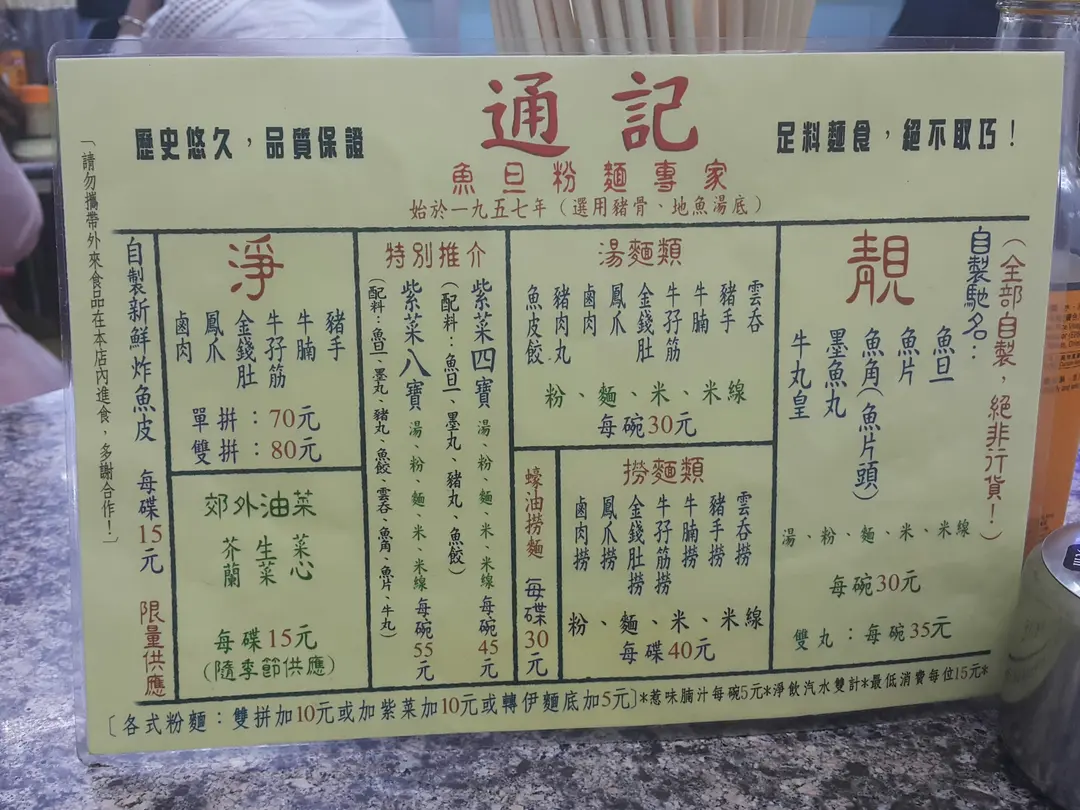 通記
歷史悠久，品質保證
足料麵食，絕不取巧！
魚旦粉麵專家
始於一九五七年（選用豬骨、地魚湯底）
（全部自製，絕非行貨！）
自製馳名：
靚
魚旦
魚片
魚角(魚片頭)
墨魚丸
牛丸皇
湯、粉、麵、米、米線
每碗30元
雙丸：每碗35元
湯麵類
雲吞
豬手
牛腩
牛孖筋
金錢肚
鳳爪
鹵肉
豬肉丸
魚皮餃
粉、麵、米、米線
每碗30元
撈麵類
雲吞撈
豬手撈
牛腩撈
牛孖筋撈
金錢肚撈
鳳爪撈
鹵肉撈
粉、麵、米、米線
每碟40元
蠔油撈麵 每碟30元
特別推介
紫菜四寶 湯、粉、麵、米、米線 每碗45元
（配料：魚旦、墨丸、豬丸、魚餃）
紫菜八寶 湯、粉、麵、米、米線 每碗55元
（配料：魚旦、墨丸、豬丸、魚餃、雲吞、魚角、魚片、牛丸）
淨
豬手
牛腩
牛孖筋
金錢肚
鳳爪
鹵肉
單拼：70元
雙拼：80元
郊外油菜
菜心
生菜
芥蘭
每碟15元
(隨季節供應)
自製新鮮炸魚皮 每碟15元 限量供應
「請勿攜帶外來食品在本店內進食，多謝合作！」
〔各式粉麵：雙拼加10元或加紫菜加10元或轉伊麵底加5元〕*惹味腩汁每碗5元*淨飲汽水雙計*最低消費每位15元*